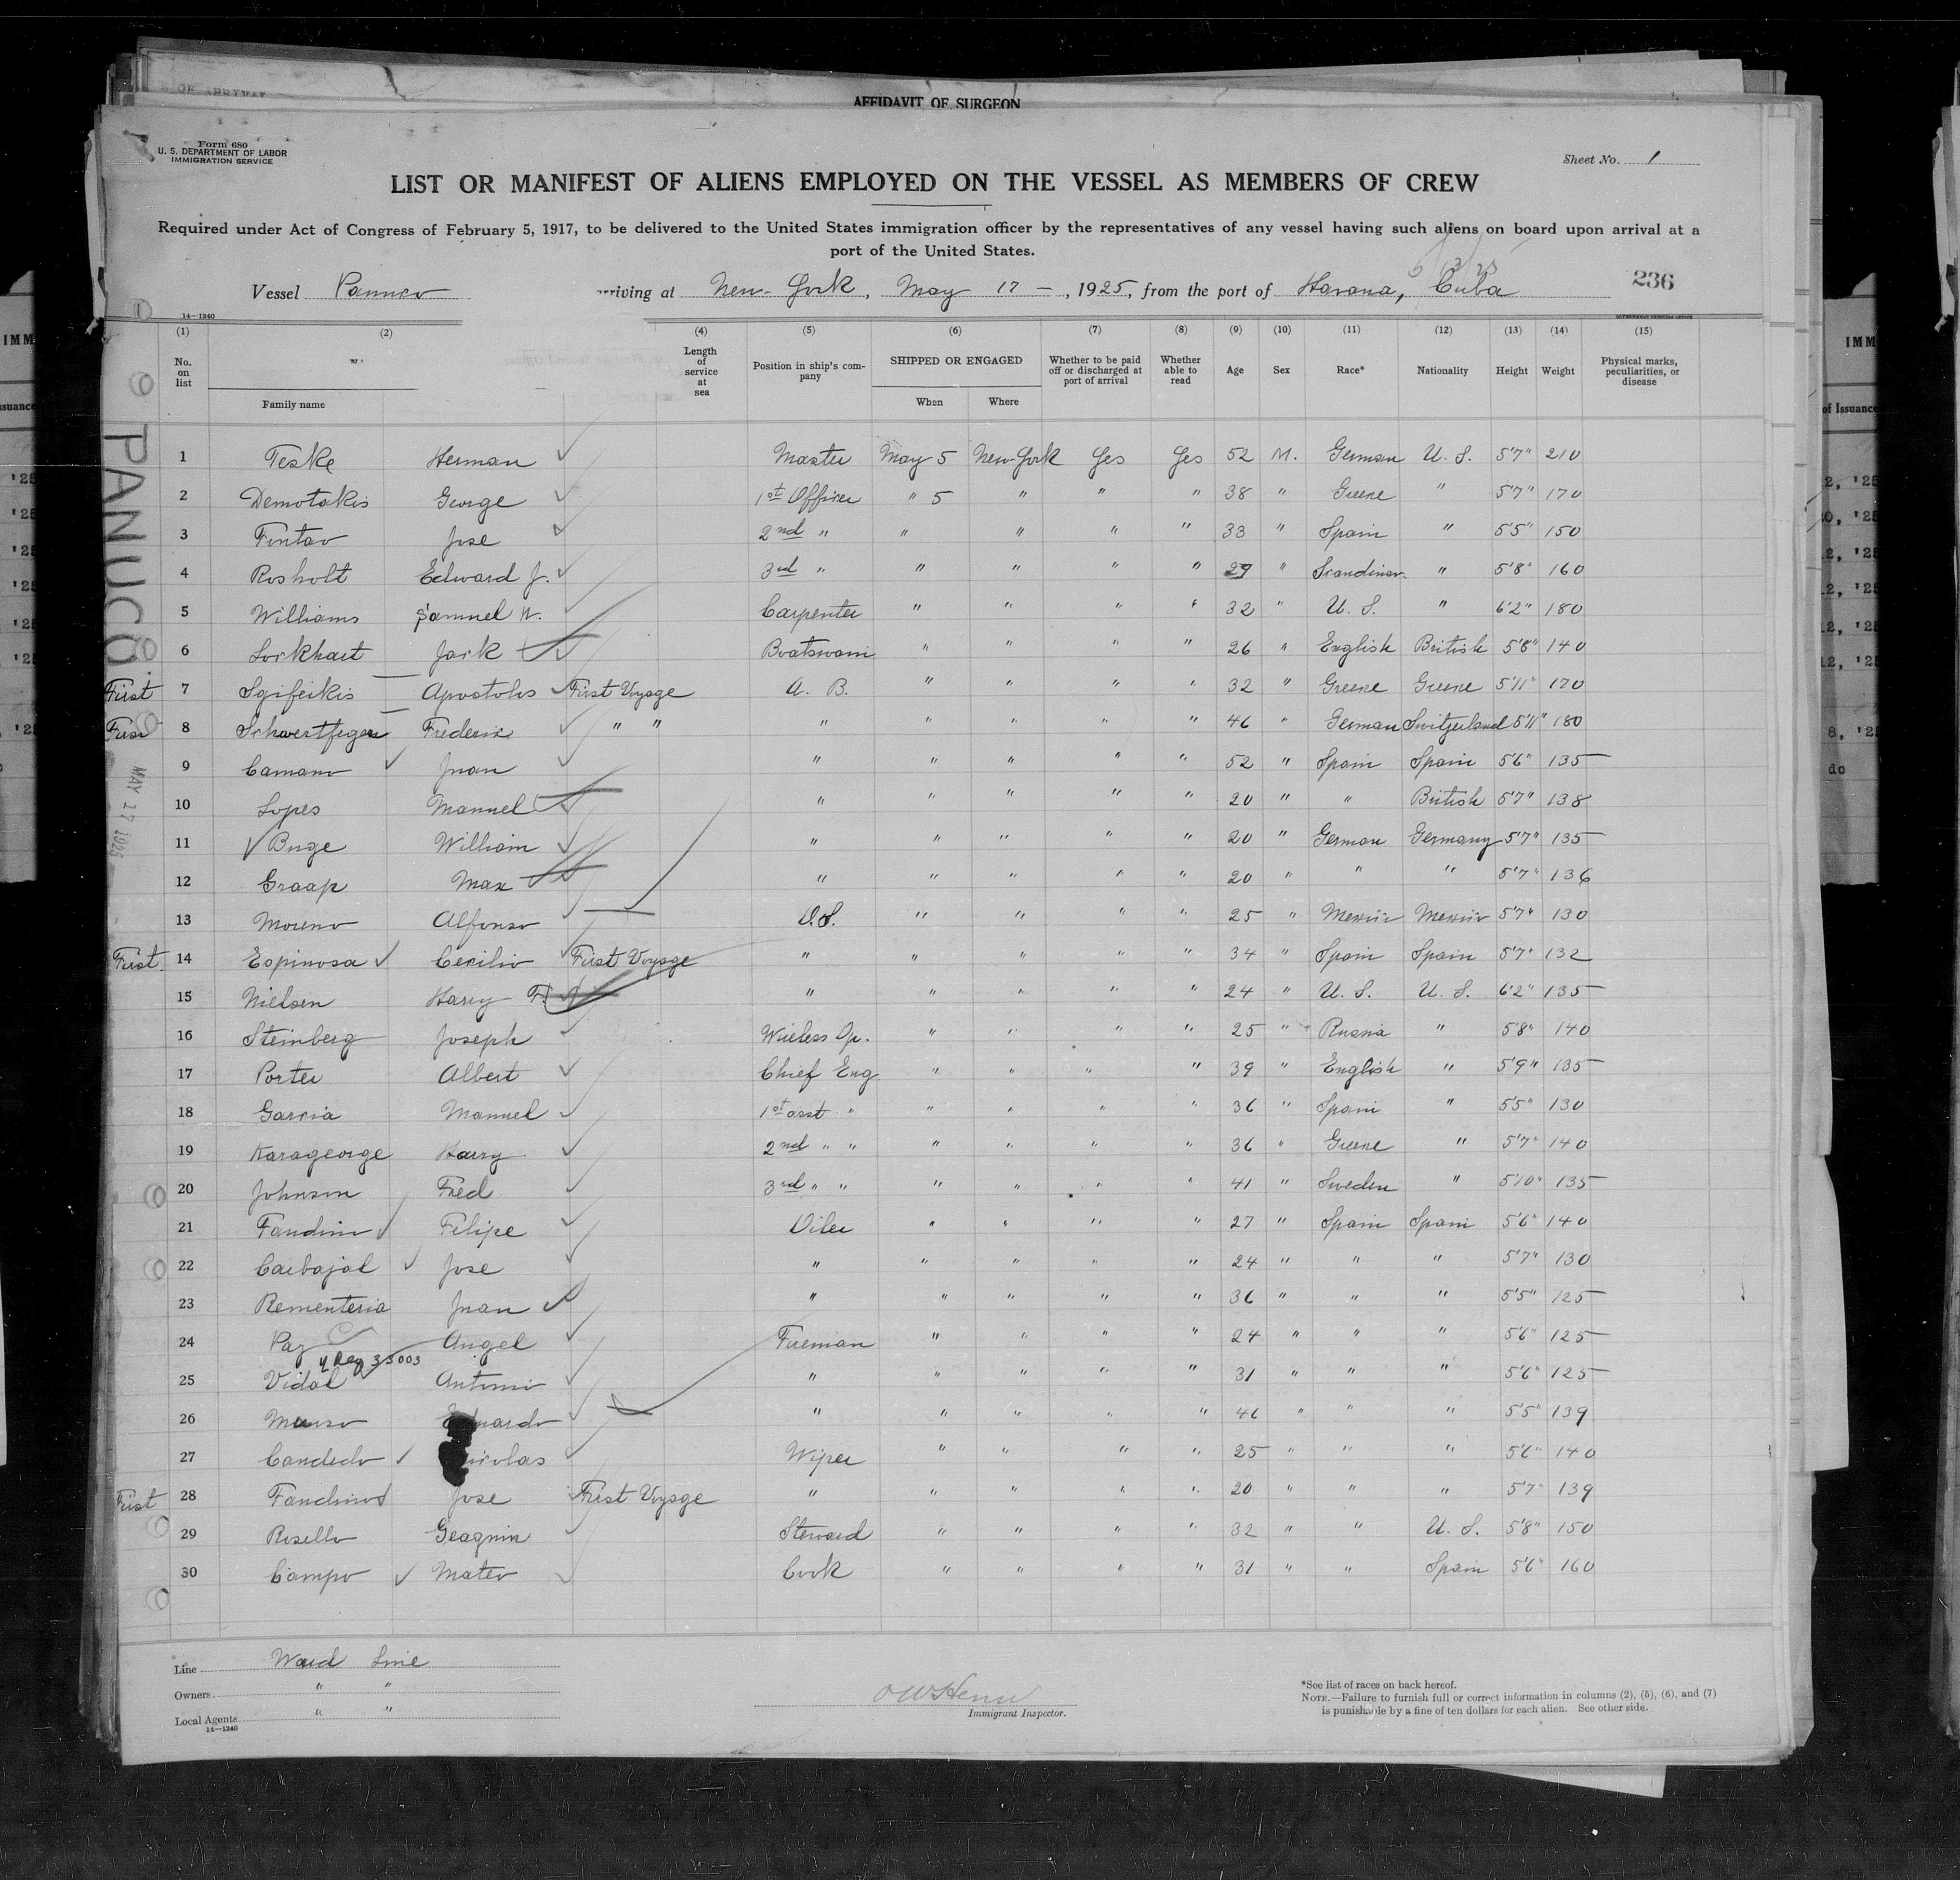 OF ARRIVAL
AFFIDAVIT OF SURGEON
Form 680
U. S. DEPARTMENT OF LABOR
IMMIGRATION SERVICE
Sheet No. 1
LIST OR MANIFEST OF ALIENS EMPLOYED ON THE VESSEL AS MEMBERS OF CREW
Required under Act of Congress of February 5, 1917, to be delivered to the United States immigration officer by the representatives of any vessel having such aliens on board upon arrival at a
port of the United States.
Vessel Panuco arriving at New-York, May 17 -, 1925, from the port of Havana, Cuba 236
14—1240
(1) (2) (4) (5) (6) (7) (8) (9) (10) (11) (12) (13) (14) (15)
No. on list Family name Length of service at sea Position in ship's company SHIPPED OR ENGAGED When Where Whether to be paid off or discharged at port of arrival Whether able to read Age Sex Race* Nationality Height Weight Physical marks, peculiarities, or disease
PANUCO
MAY 17 1925
1 Teske Herman Master May 5 New-York Yes Yes 52 M. German U. S. 5'7" 210
2 Demotakis George 1st Officer " 5 " " " 38 " Greece " 5'7" 170
3 Jose 2nd " " " " " 33 " Spain " 5'5" 150
4 Rosholt Edward J. 3rd " " " " " 29 " Scandinav. " 5'8" 160
5 Williams Samuel W. Carpenter " " " " 32 " U. S. " 6'2" 180
6 Lockhart Jack Boatswain " " " " 26 " English British 5'8" 140
First 7 Sgifeikis Apostolos First Voyage A. B. " " " " 32 " Greece Greece 5'11" 170
First 8 Schwertfeger Frederic " " " " " " " 46 " German Switzerland 5'11" 180
9 Camano Juan " " " " " 52 " Spain Spain 5'6" 135
10 Lopes Manuel " " " " " 20 " " British 5'7" 138
11 Buge William " " " " " 20 " German Germany 5'7" 135
12 Graap Max " " " " " 20 " " " 5'7" 136
13 Moreno Alfonso O.S. " " " " 25 " Mexico Mexico 5'7" 130
First 14 Espinosa Cecilio First Voyage " " " " " 34 " Spain Spain 5'7" 132
15 Nielsen Harry F. " " " " " 24 " U. S. U. S. 6'2" 135
16 Steinberg Joseph Wireless Op. " " " " 25 " Russia " 5'8" 140
17 Porter Albert Chief Eng. " " " " 39 " English " 5'9" 135
18 Garcia Manuel 1st asst " " " " " 36 " Spain " 5'5" 130
19 Karageorge Harry 2nd " " " " " " 36 " Greece " 5'7" 140
20 Johnson Fred 3rd " " " " " " 41 " Sweden " 5'10" 135
21 Fandino Felipe Oiler " " " " 27 " Spain Spain 5'6" 140
22 Carbajal Jose " " " " " 24 " " " 5'7" 130
23 Rementeria Juan " " " " " 36 " " " 5'5" 125
24 Paz Angel Fireman " " " " 24 " " " 5'6" 125
33003
25 Vidal Antonio " " " " " 31 " " " 5'6" 125
26 " " " " " 46 " " " 5'5" 139
27 Candedo Nicolas Wiper " " " " 25 " " " 5'6" 140
First 28 Fandino Jose First Voyage " " " " " 20 " " " 5'7" 139
29 Rosello Geagnin Steward " " " " 32 " " U. S. 5'8" 150
30 Campo Mateo Cook " " " " 31 " " Spain 5'6" 160
Line Ward Line
Owners " "
Local Agents " "
14—1240
Immigrant Inspector.
*See list of races on back hereof.
NOTE.—Failure to furnish full or correct information in columns (2), (5), (6), and (7)
is punishable by a fine of ten dollars for each alien. See other side.